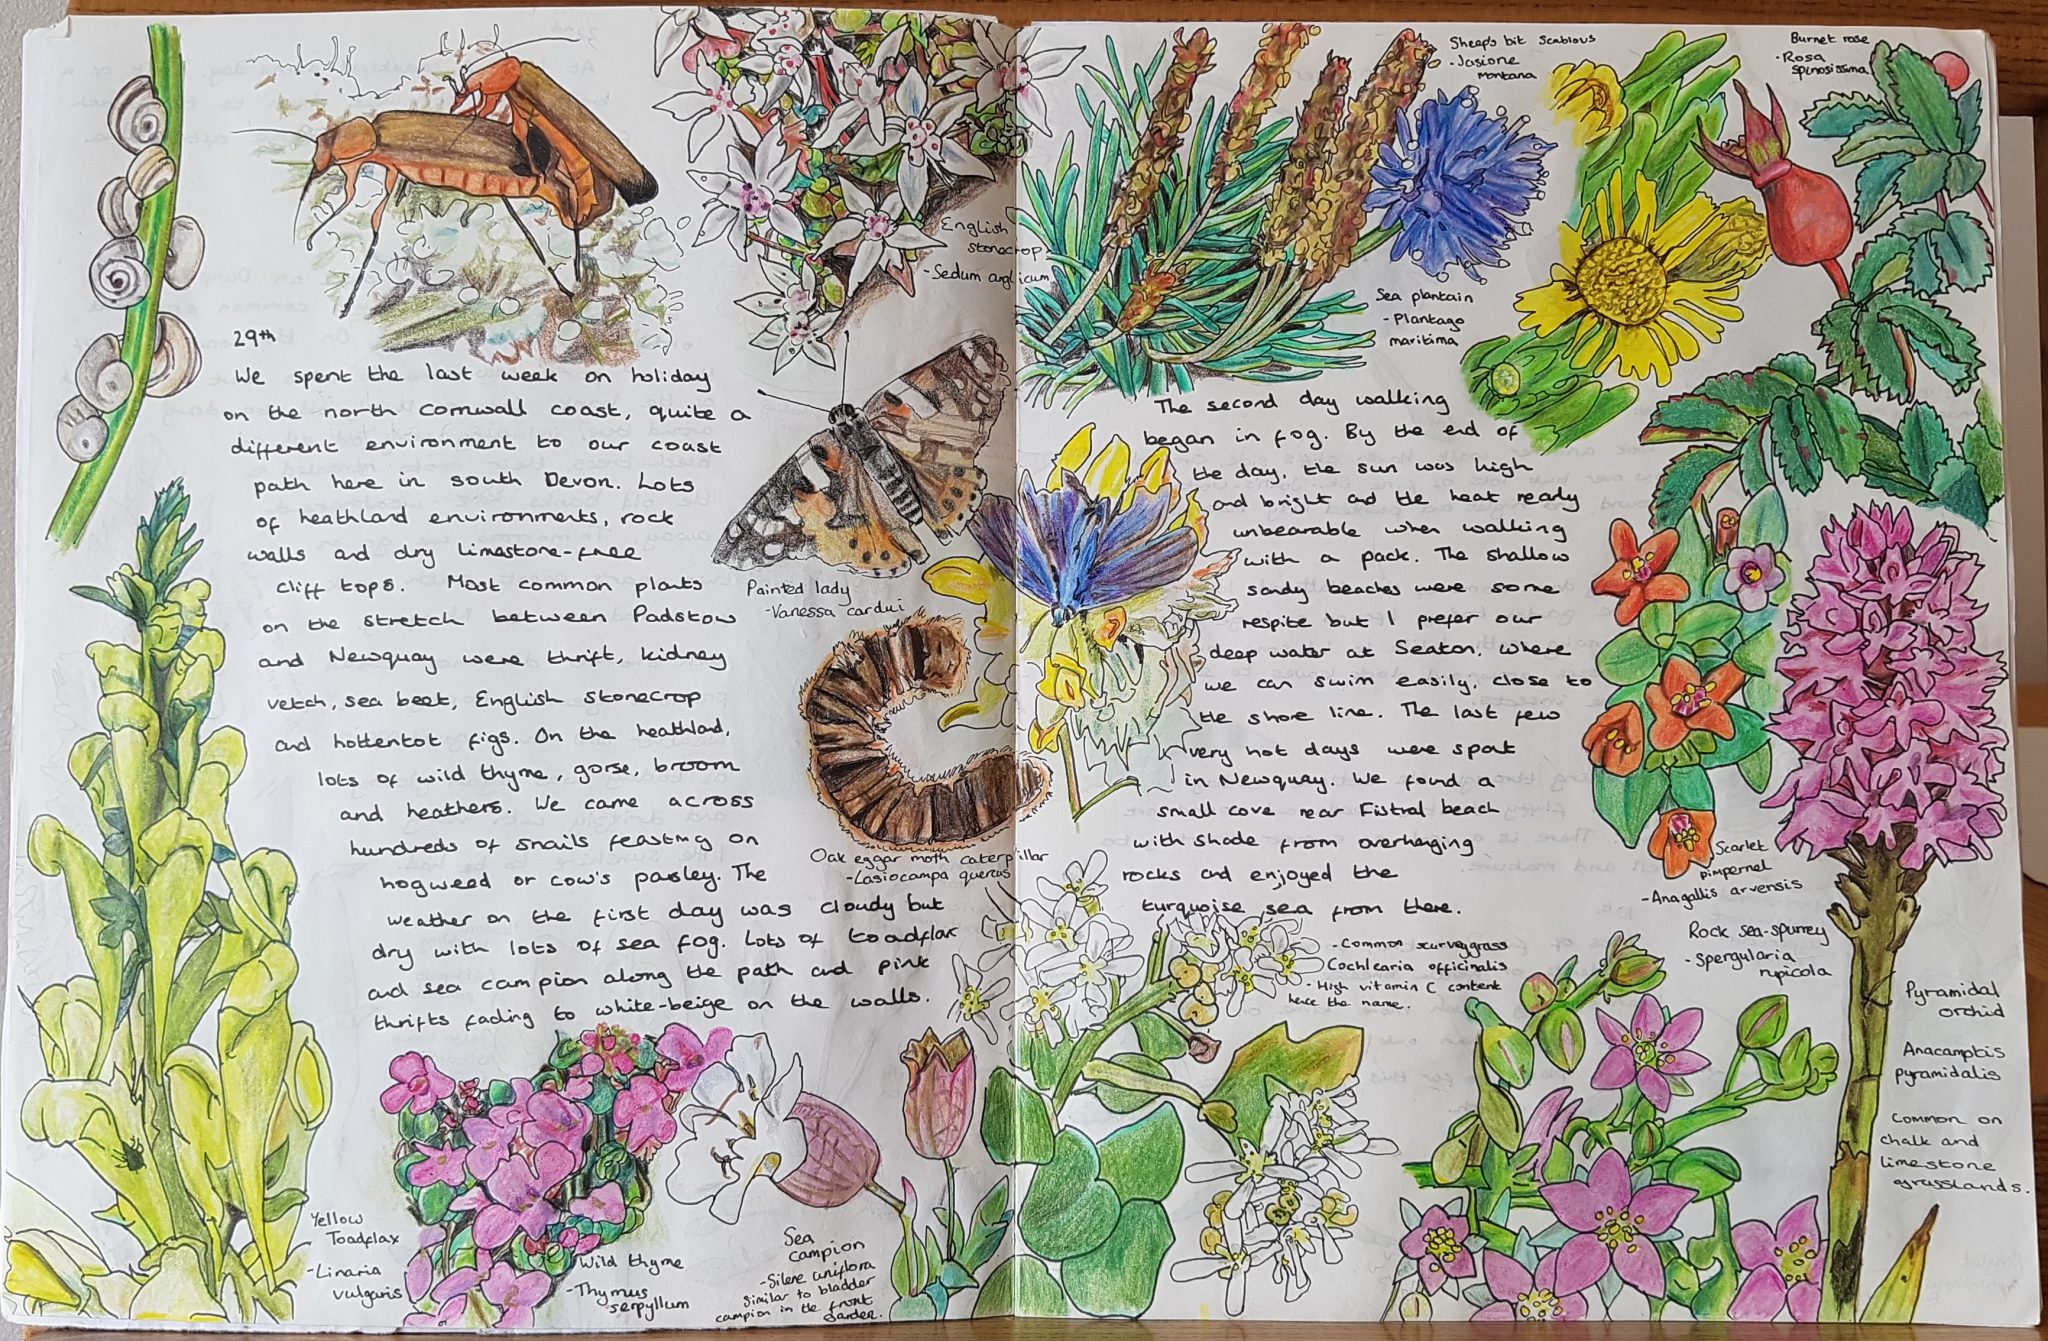 29th
We spent the last week on holiday
on the north cornwall coast, quite a
different environment to our coast
path here in south Devon. Lots
of heathland environments, rock
walls and dry limestone-free
cliff tops. Most common plants
on the stretch between Padstow
and Newquay were thrift, kidney
vetch, sea beet, English stonecrop
and hottentot figs. On the heathland,
lots of wild thyme, gorse, broom
and heathers. We came across
hundreds of snails feasting on
hogweed or cow's parsley. The
weather on the first day was cloudy but
dry with lots of sea fog. Lots of toadflax
and sea campion along the path and pink
thrifts fading to white-beige on the walls.
English
stonecrop
- Sedum anglicum
Painted lady
- Vanessa cardui
Oak eggar moth caterpillar
- Lasiocampa quercus
Yellow
Toadflax
- Linaria
vulgaris
Wild thyme
- Thymus
serpyllum
Sea
campion
- Silene uniflora
similar to bladder
campion in the front
garden.
Sheep's bit scabious
- Jasione
montana
Burnet rose
- Rosa
spinosissima
Sea plantain
- Plantago
maritima
The second day walking
began in fog. By the end of
the day, the sun was high
and bright and the heat ready
unbearable when walking
with a pack. The shallow
sandy beaches were some
respite but I prefer our
deep water at Seaton, where
we can swim easily, close to
the shore line. The last few
very hot days were spent
in Newquay. We found a
small cove near Fistral beach
with shade from overhanging
rocks and enjoyed the
turquoise sea from there.
Scarlet
pimpernel
- Anagallis arvensis
Rock sea-spurrey
- Spergularia
rupicola
- Common scurveygrass
Cochlearia officinalis
- High vitamin C content
hence the name.
Pyramidal
orchid
Anacamptis
pyramidalis
Common on
chalk and
limestone
grasslands.